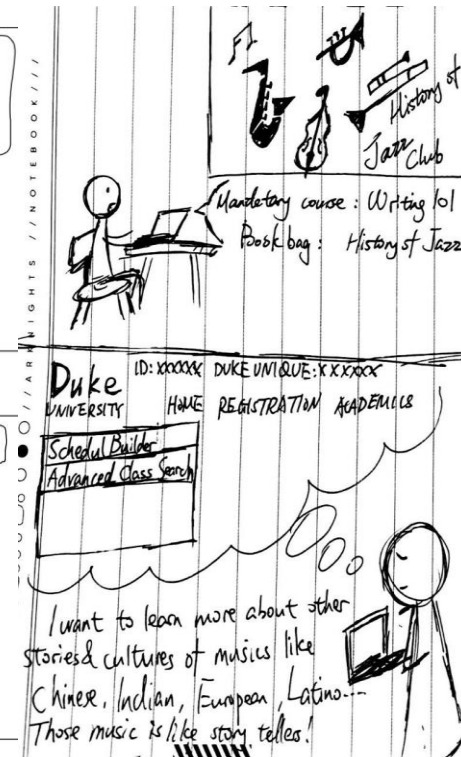 History of
Jazz
Club
Mandetary course : Writing 101
Book bag : History of Jazz
//ARKNIGHTS //NOTEBOOK///
Duke
UNIVERSITY
ID: XXXXXX DUKE UNIQUE: XXXXXX
HOME REGISTRATION ACADEMICS
Schedul Builder
Advanced Class Search
I want to learn more about other
stories & cultures of musics like
Chinese, Indian, European, Latino---
Those music is like story tellers!